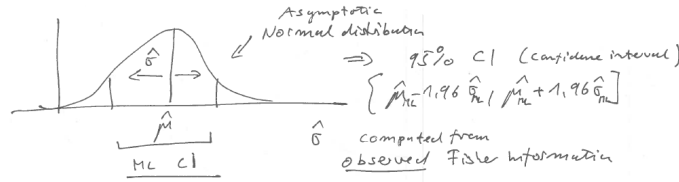 Asymptotic
Normal distribution
⇒ 95% CI (confidence interval)
σ̂
[μ̂_ML - 1,96 σ̂_ML, μ̂_ML + 1,96 σ̂_ML]
μ̂
σ̂ computed from
observed Fisher Information
ML CI